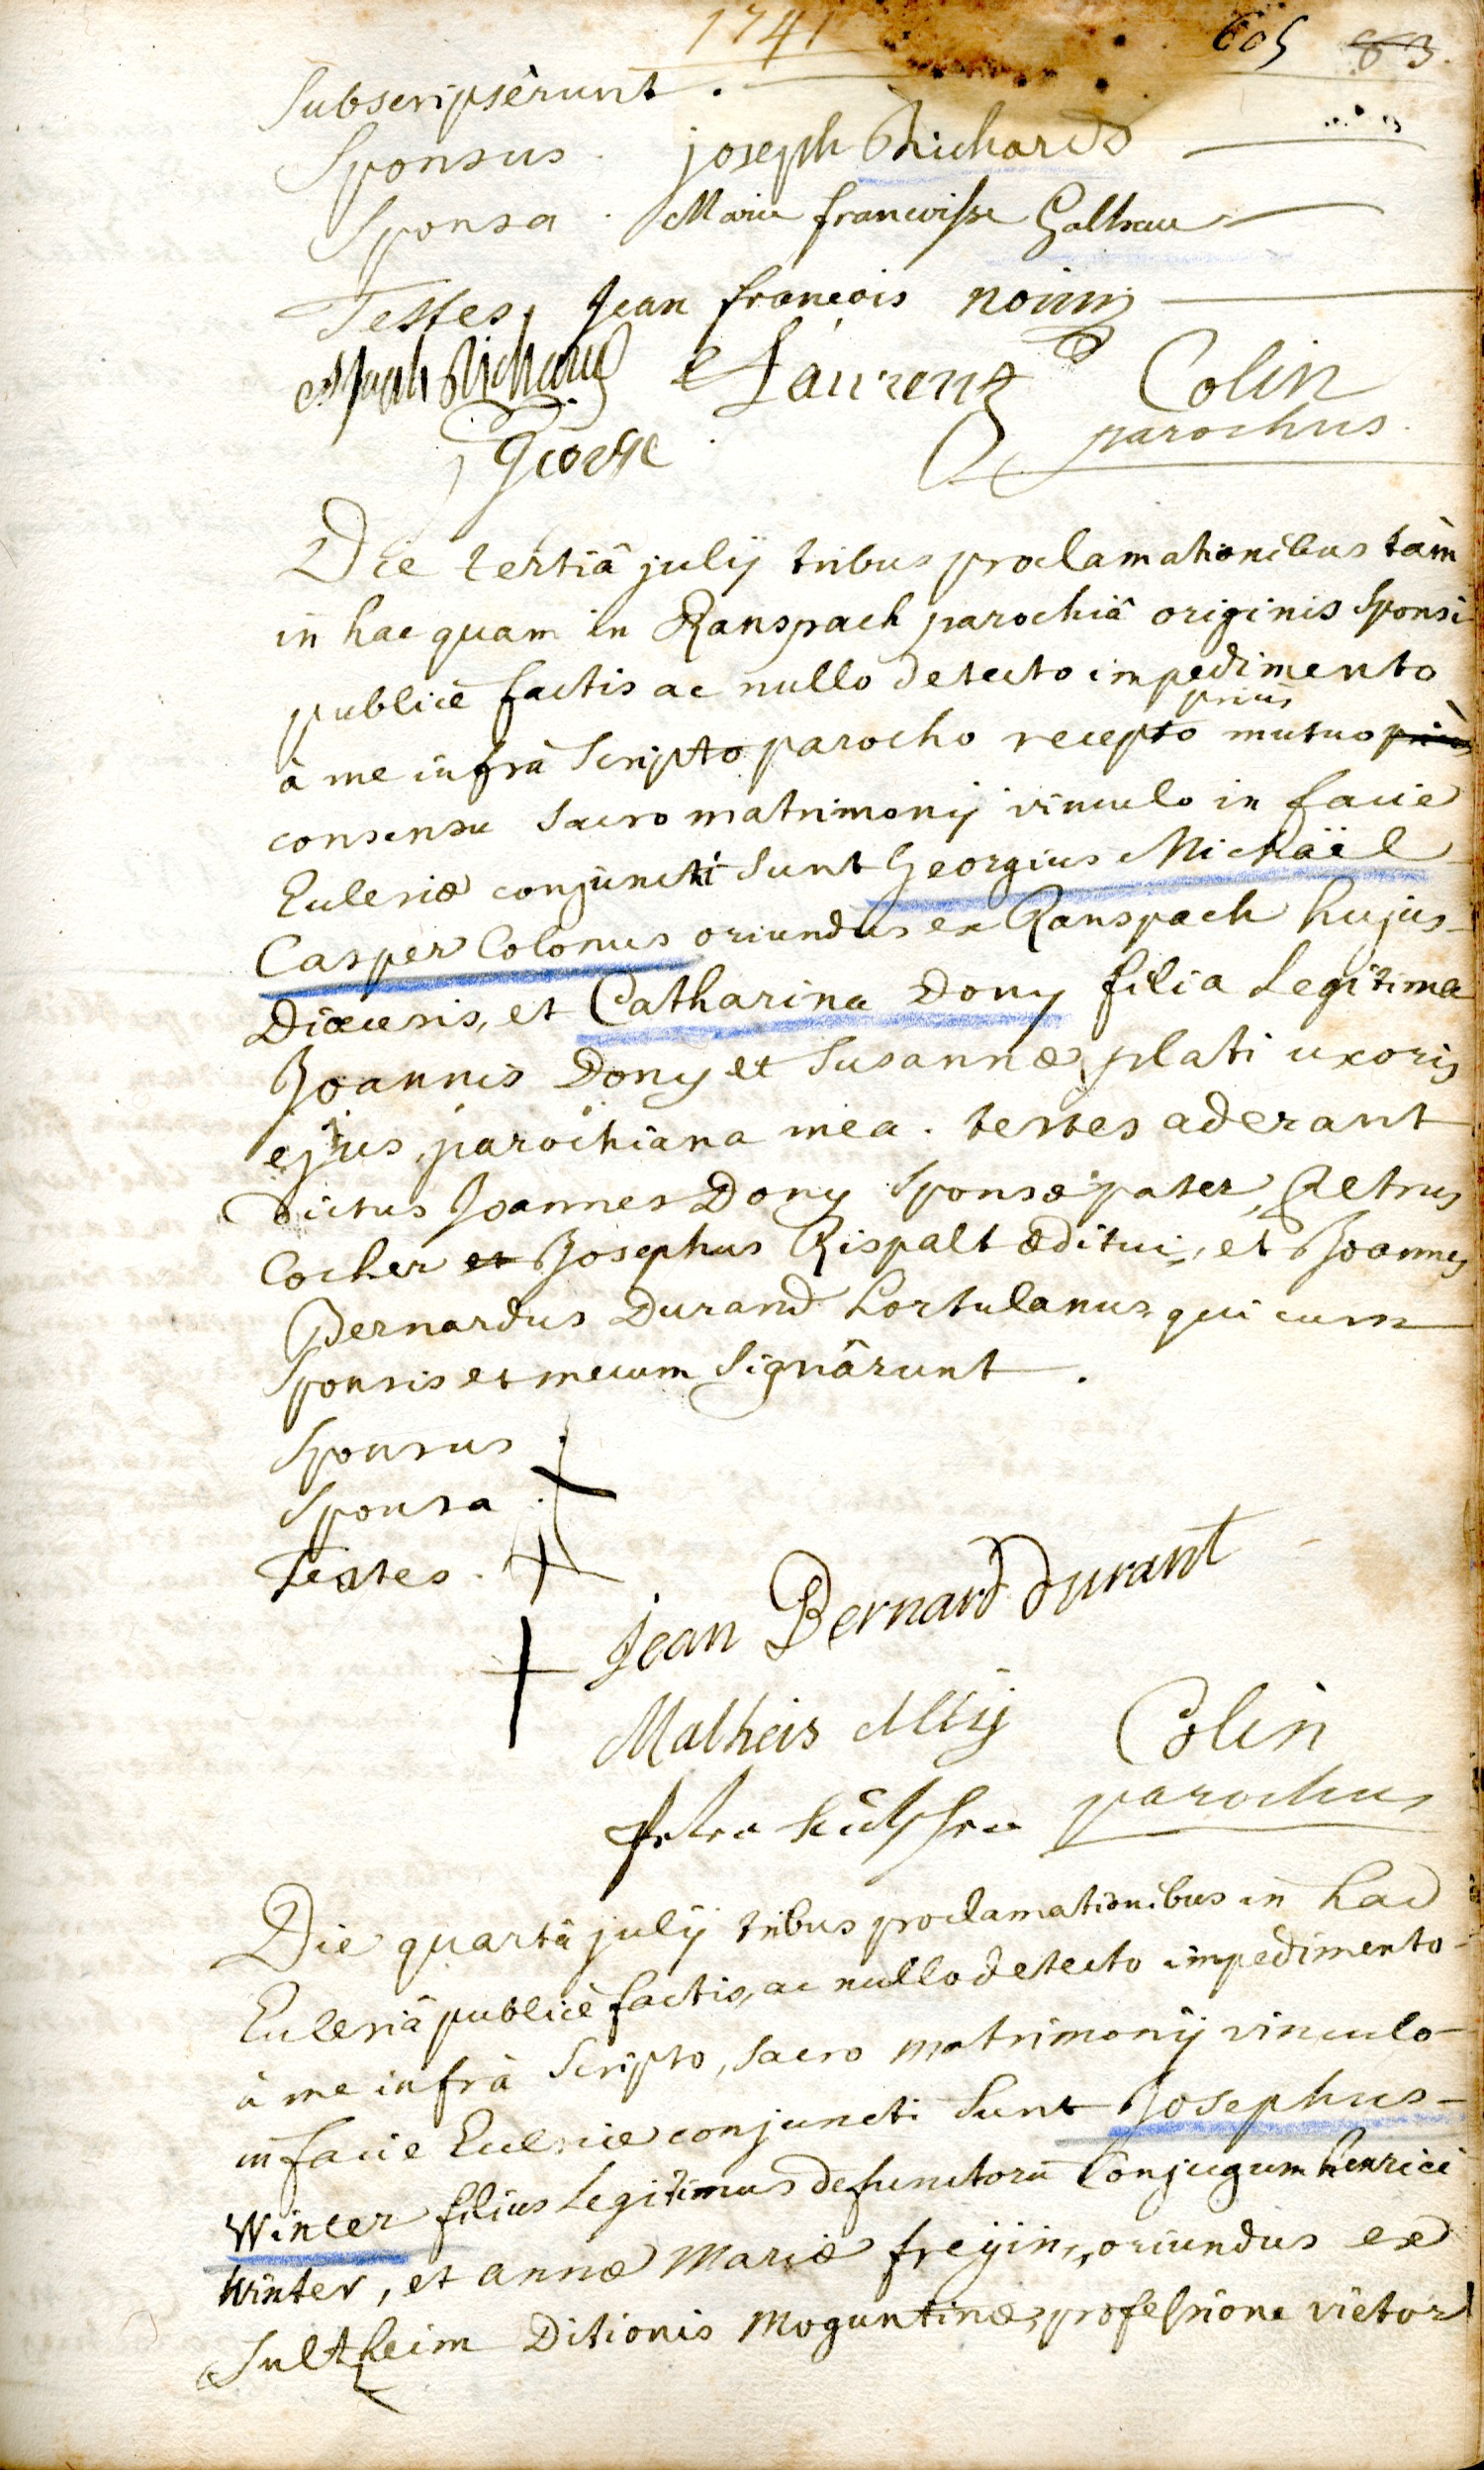 1741 605 83.
Subscripsêrunt .
Sponsus . joseph Richard
Sponsa . Marie francoisse Galhau
Testes, Jean francois noirin
Joseph Richard Laurent Colin
George parochus.
Die tertiâ julij tribus proclamationibus tàm
in hac quam in Ranspach parochiâ originis Sponsi
publicè factis ac nullo detecto impedimento
prius
à me infrà Scripto parocho recepto mutuo prius
consensu Sacro matrimonij vinculo in facie
Ecclesiæ conjuncti Sunt Georgius Michaël
Casper Colonus oriundus ex Ranspach hujus
Diœcesis, et Catharina Dony filia Legitima
Joannis Dony et Susannæ plati uxoris
ejus, parochiana mea. testes aderant
dictus Joannes Dony Sponsæ pater, Petrus
Cocher et Josephus Rispalt æditui, et Joannes
Bernardus Durand hortulanus qui cum
Sponsis et mecum Signârunt .
Sponsus .
Sponsa .
Testes .
jean Bernard durant
Matheis Colin
parochus
Die quartâ julij tribus proclamationibus in hac
Ecclesiâ publicè factis, ac nullo detecto impedimento
à me infrà Scripto, Sacro matrimonij vinculo
in facie Ecclesiæ conjuncti Sunt Josephus
Winter filius Legitimus defunctorū Conjugum henrici
Winter, et annæ Mariæ freÿin, oriundus ex
Sultzheim Ditionis Moguntinæ, professione vietor